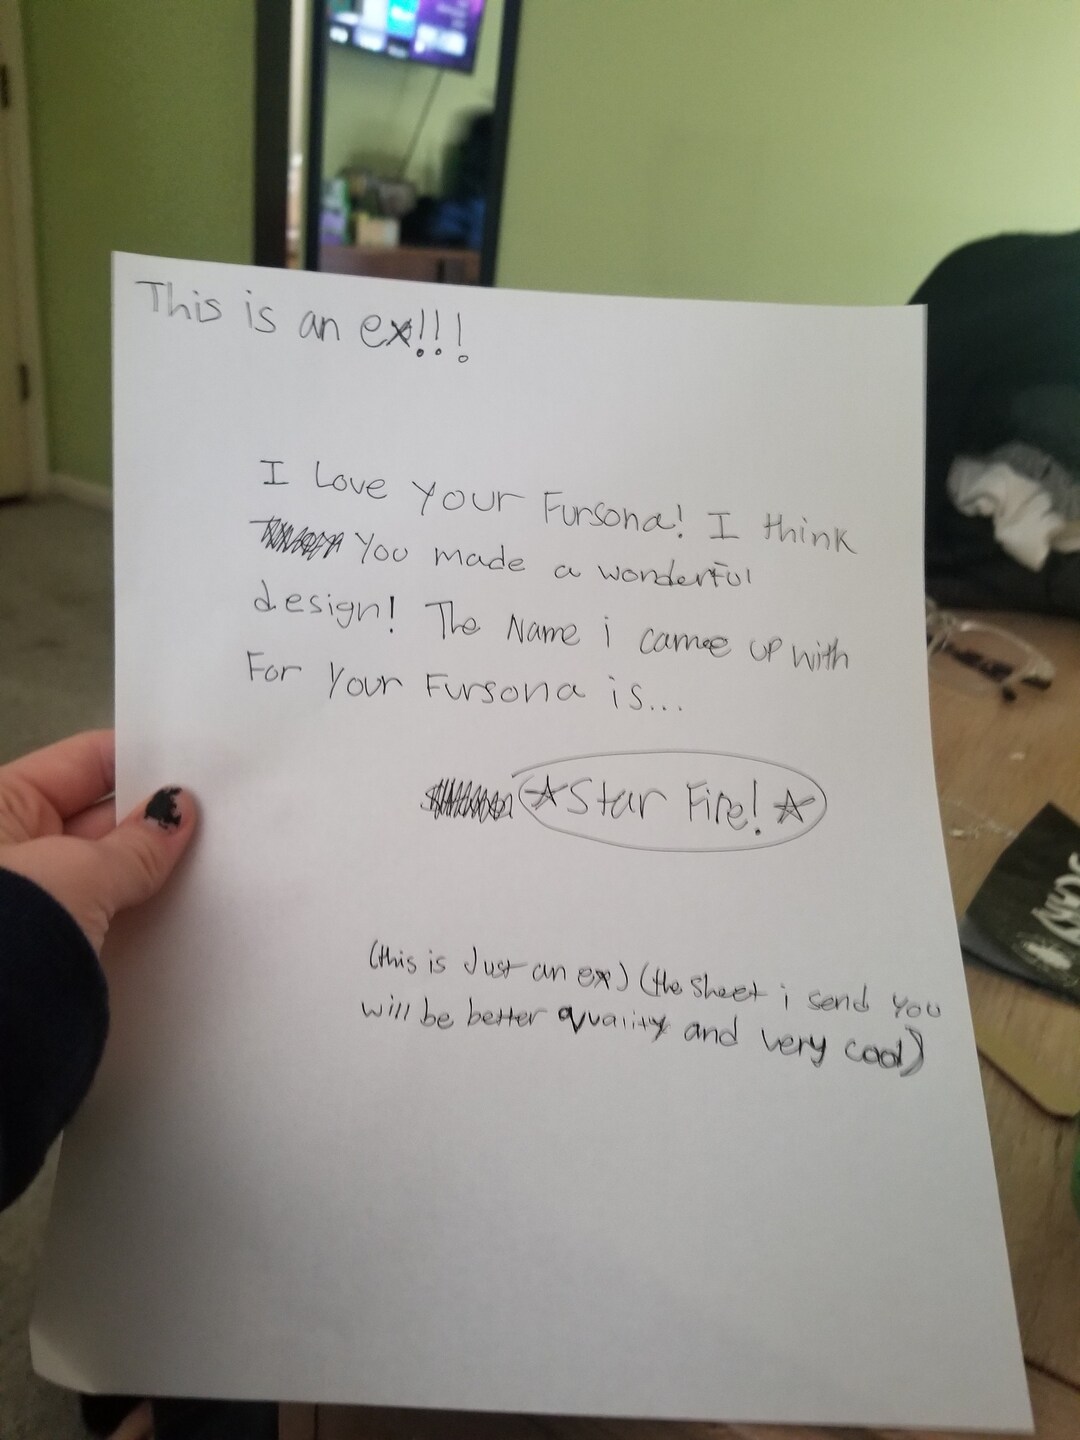 This is an ex!!!
I Love Your Fursona! I think
You made a wonderful
design! The Name i came up with
For Your Fursona is...
☆Star Fire!☆
(this is Just an ex) (the sheet i send you
will be better quality and very cool)